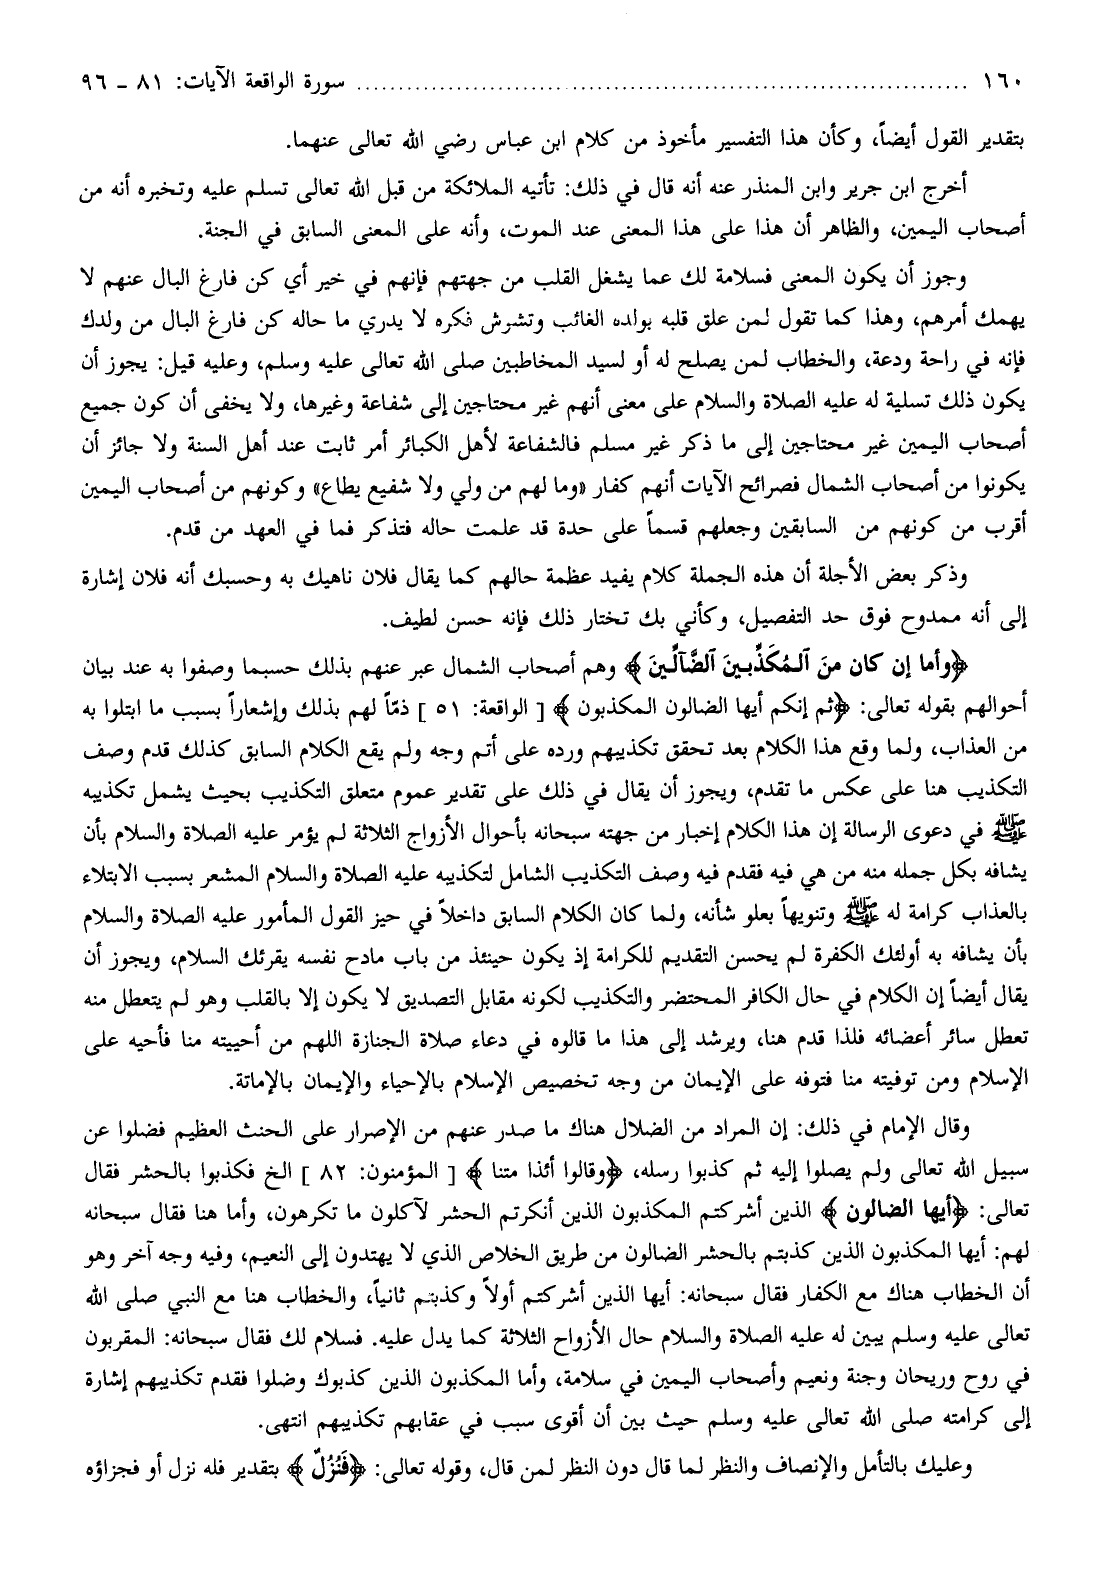 ١٦٠ ........................................ سورة الواقعة الآيات: ٨١ ـ ٩٦
بتقدير القول أيضاً، وكأن هذا التفسير مأخوذ من كلام ابن عباس رضي الله تعالى عنهما.
أخرج ابن جرير وابن المنذر عنه أنه قال في ذلك: تأتيه الملائكة من قبل الله تعالى تسلم عليه وتخبره أنه من
أصحاب اليمين، والظاهر أن هذا على هذا المعنى عند الموت، وأنه على المعنى السابق في الجنة.
وجوز أن يكون المعنى فسلامة لك عما يشغل القلب من جهتهم فإنهم في خير أي كن فارغ البال عنهم لا
يهمك أمرهم، وهذا كما تقول لمن علق قلبه بولده الغائب وتشوش فكره لا يدري ما حاله كن فارغ البال من ولدك
فإنه في راحة ودعة، والخطاب لمن يصلح له أو لسيد المخاطبين صلى الله تعالى عليه وسلم، وعليه قيل: يجوز أن
يكون ذلك تسلية له عليه الصلاة والسلام على معنى أنهم غير محتاجين إلى شفاعة وغيرها، ولا يخفى أن كون جميع
أصحاب اليمين غير محتاجين إلى ما ذكر غير مسلم فالشفاعة لأهل الكبائر أمر ثابت عند أهل السنة ولا جائز أن
يكونوا من أصحاب الشمال فصرائح الآيات أنهم كفار «وما لهم من ولي ولا شفيع يطاع» وكونهم من أصحاب اليمين
أقرب من كونهم من السابقين وجعلهم قسماً على حدة قد علمت حاله فتذكر فما في العهد من قدم.
وذكر بعض الأجلة أن هذه الجملة كلام يفيد عظمة حالهم كما يقال فلان ناهيك به وحسبك أنه فلان إشارة
إلى أنه ممدوح فوق حد التفصيل، وكأني بك تختار ذلك فإنه حسن لطيف.
﴿وأما إن كان منَ ٱلـمُكَذِّبـينَ ٱلضَّآلِّينَ﴾ وهم أصحاب الشمال عبر عنهم بذلك حسبما وصفوا به عند بيان
أحوالهم بقوله تعالى: ﴿ثم إنكم أيها الضالون المكذبون﴾ [ الواقعة: ٥١ ] ذمّاً لهم بذلك وإشعاراً بسبب ما ابتلوا به
من العذاب، ولما وقع هذا الكلام بعد تحقق تكذيبهم ورده على أتم وجه ولم يقع الكلام السابق كذلك قدم وصف
التكذيب هنا على عكس ما تقدم، ويجوز أن يقال في ذلك على تقدير عموم متعلق التكذيب بحيث يشمل تكذيبه
ﷺ في دعوى الرسالة إن هذا الكلام إخبار من جهته سبحانه بأحوال الأزواج الثلاثة لم يؤمر عليه الصلاة والسلام بأن
يشافه بكل جمله منه من هي فيه فقدم فيه وصف التكذيب الشامل لتكذيبه عليه الصلاة والسلام المشعر بسبب الابتلاء
بالعذاب كرامة له ﷺ وتنويهاً بعلو شأنه، ولما كان الكلام السابق داخلاً في حيز القول المأمور عليه الصلاة والسلام
بأن يشافه به أولئك الكفرة لم يحسن التقديم للكرامة إذ يكون حينئذ من باب مادح نفسه يقرئك السلام، ويجوز أن
يقال أيضاً إن الكلام في حال الكافر المحتضر والتكذيب لكونه مقابل التصديق لا يكون إلا بالقلب وهو لم يتعطل منه
تعطل سائر أعضائه فلذا قدم هنا، ويرشد إلى هذا ما قالوه في دعاء صلاة الجنازة اللهم من أحييته منا فأحيه على
الإسلام ومن توفيته منا فتوفه على الإيمان من وجه تخصيص الإسلام بالإحياء والإيمان بالإماتة.
وقال الإمام في ذلك: إن المراد من الضلال هناك ما صدر عنهم من الإصرار على الحنث العظيم فضلوا عن
سبيل الله تعالى ولم يصلوا إليه ثم كذبوا رسله، ﴿وقالوا أئذا متنا﴾ [ المؤمنون: ٨٢ ] الخ فكذبوا بالحشر فقال
تعالى: ﴿أيها الضالون﴾ الذين أشركتم المكذبون الذين أنكرتم الحشر لآكلون ما تكرهون، وأما هنا فقال سبحانه
لهم: أيها المكذبون الذين كذبتم بالحشر الضالون من طريق الخلاص الذي لا يهتدون إلى النعيم، وفيه وجه آخر وهو
أن الخطاب هناك مع الكفار فقال سبحانه: أيها الذين أشركتم أولاً وكذبتم ثانياً، والخطاب هنا مع النبي صلى الله
تعالى عليه وسلم يبين له عليه الصلاة والسلام حال الأزواج الثلاثة كما يدل عليه. فسلام لك فقال سبحانه: المقربون
في روح وريحان وجنة ونعيم وأصحاب اليمين في سلامة، وأما المكذبون الذين كذبوك وضلوا فقدم تكذيبهم إشارة
إلى كرامته صلى الله تعالى عليه وسلم حيث بين أن أقوى سبب في عقابهم تكذيبهم انتهى.
وعليك بالتأمل والإنصاف والنظر لما قال دون النظر لمن قال، وقوله تعالى: ﴿فَنُزُلٌ﴾ بتقدير فله نزل أو فجزاؤه